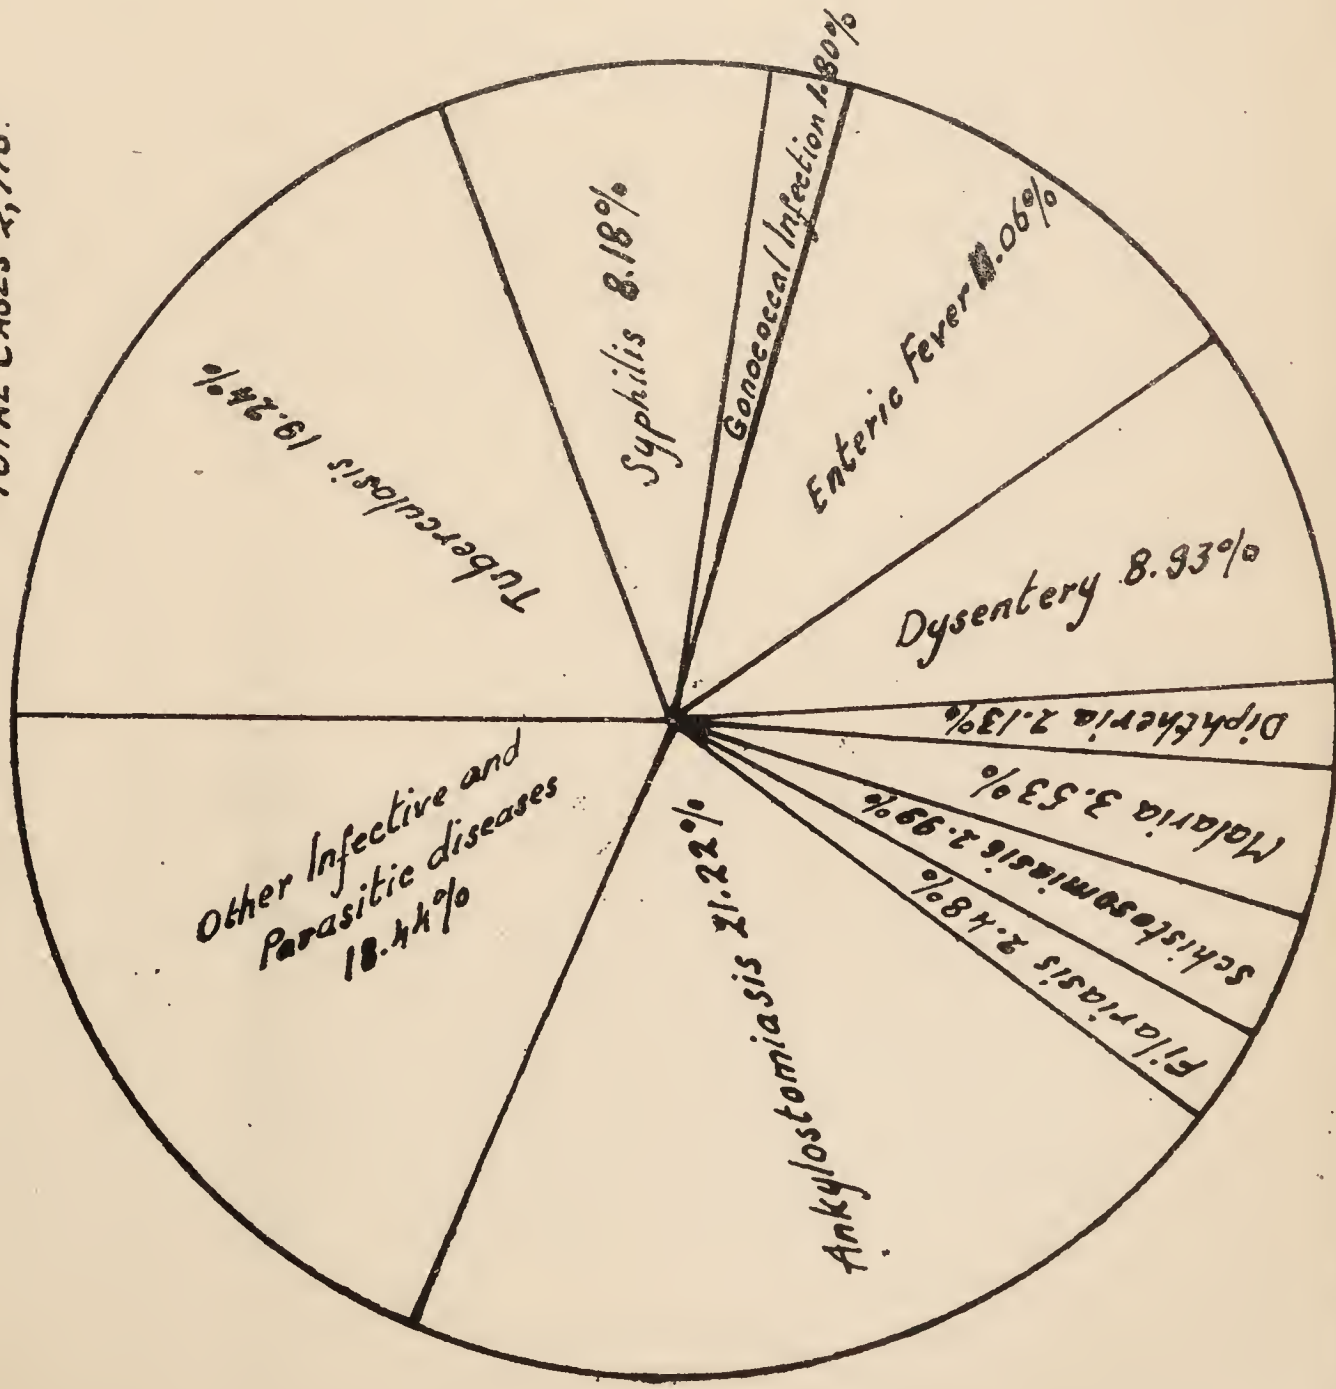 TOTAL CASES
Tuberculosis 19.24%
Syphilis 8.18%
Gonococcal Infection 1.80%
Enteric Fever 11.06%
Dysentery 8.93%
Diphtheria 2.13%
Malaria 3.53%
Schistosomiasis 2.99%
Filariasis 2.48%
Ankylostomiasis 21.22%
Other Infective and
Parasitic diseases
18.44%